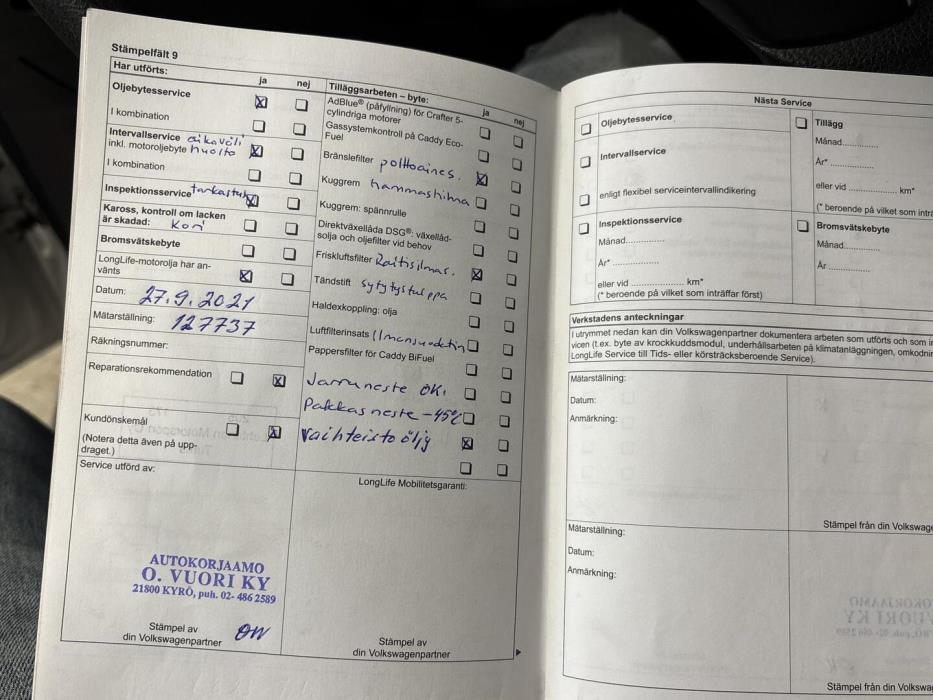 Stämpelfält 9
Har utförts: ja nej
Oljebytesservice
I kombination
Intervallservice aikaväli
inkl. motoroljebyte huolto
I kombination
Inspektionsservice tarkastus
Kaross, kontroll om lacken
är skadad: kori
Bromsvätskebyte
LongLife-motorolja har an-
vänts
Datum: 27.9.2021
Mätarställning: 127737
Räkningsnummer:
Reparationsrekommendation
Kundönskemål
(Notera detta även på upp-
draget.)
Service utförd av:
AUTOKORJAAMO
O. VUORI KY
21800 KYRÖ, puh. 02- 486 2589
Stämpel av
din Volkswagenpartner
Tilläggsarbeten – byte: ja nej
AdBlue® (påfyllning) för Crafter 5-
cylindriga motorer
Gassystemkontroll på Caddy Eco-
Fuel
Bränslefilter polttoaines.
Kuggrem hammashihna
Kuggrem: spännrulle
Direktväxellåda DSG®: växellåd-
solja och oljefilter vid behov
Friskluftsfilter Raitisilmas.
Tändstift sytytystulppa
Haldexkoppling: olja
Luftfilterinsats Ilmansuodatin
Pappersfilter för Caddy BiFuel
Jarruneste OK.
Pakkasneste -45°C
Vaihteisto öljy
LongLife Mobilitetsgaranti:
Stämpel av
din Volkswagenpartner
Nästa Service
Oljebytesservice
Intervallservice
enligt flexibel serviceintervallindikering
Inspektionsservice
Månad..............
År* ..............
eller vid .............. km*
(* beroende på vilket som inträffar först)
Tillägg
Månad..............
År* ..............
eller vid .............. km*
(* beroende på vilket som inträ
Bromsvätskebyte
Månad..............
År ..............
Verkstadens anteckningar
I utrymmet nedan kan din Volkswagenpartner dokumentera arbeten som utförts och som in
vicen (t.ex. byte av krockkuddsmodul, underhållsarbeten på klimatanläggningen, omkodnin
LongLife Service till Tids- eller körsträcksberoende Service).
Mätarställning:
Datum:
Anmärkning:
Stämpel från din Volkswage
Mätarställning:
Datum:
Anmärkning:
Stämpel från din Volkswa